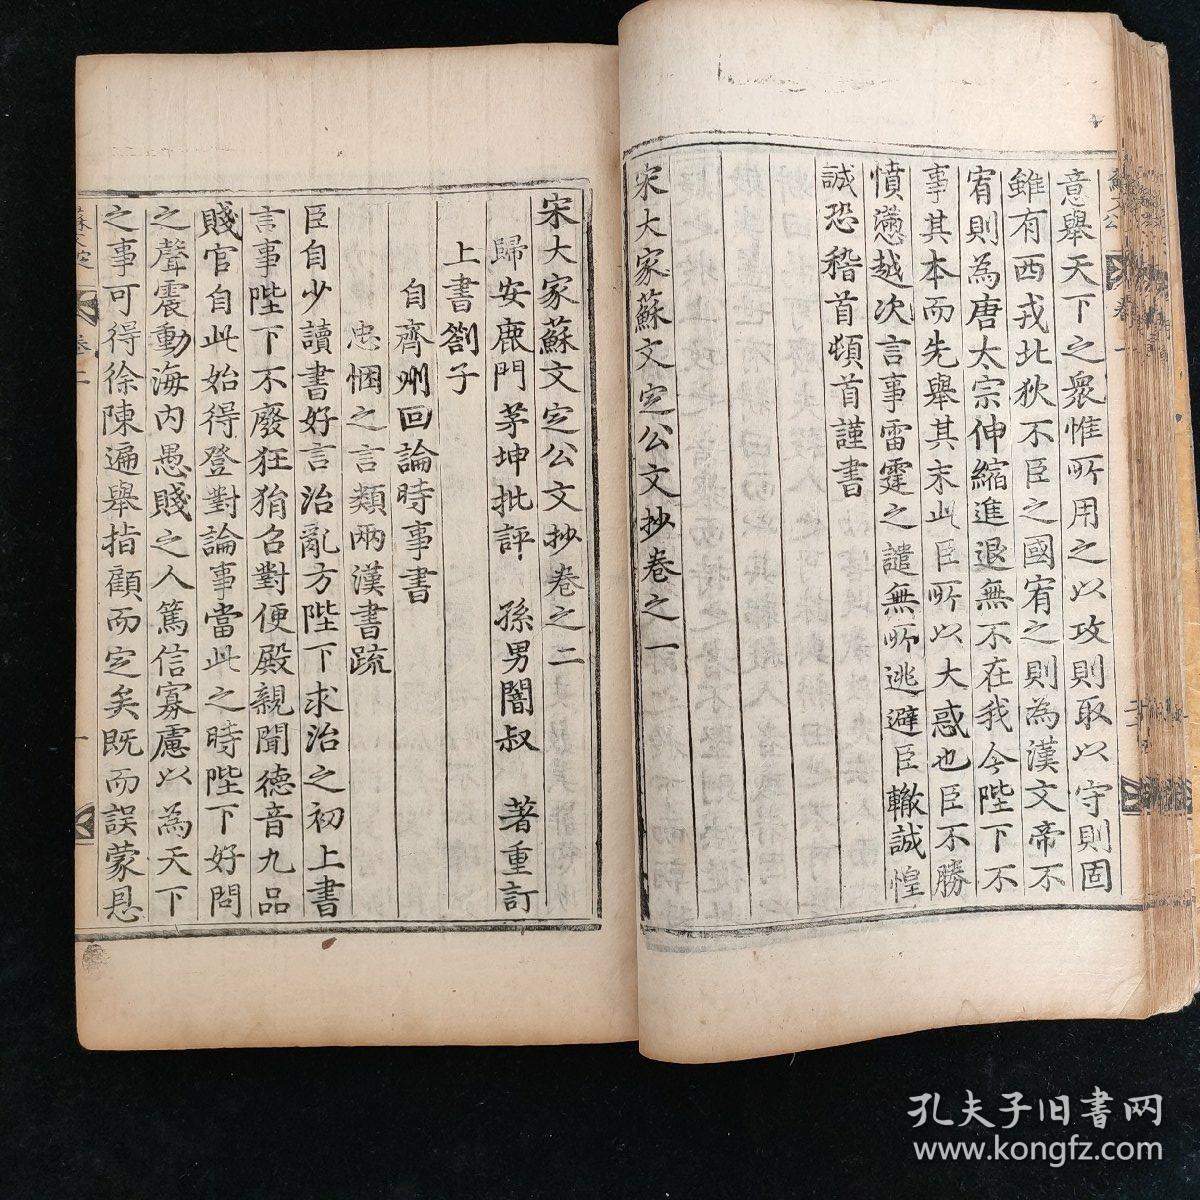 意舉天下之衆惟所用之以攻則取以守則固
雖有西戎北狄不臣之國宥之則為漢文帝不
宥則為唐太宗伸縮進退無不在我今陛下不
事其本而先舉其末此臣所以大惑也臣不勝
憤懣越次言事雷霆之譴無所逃避臣轍誠惶
誠恐稽首頓首謹書
宋大家蘇文定公文抄卷之一
宋大家蘇文定公文抄卷之二
歸安鹿門茅坤批評 孫男闇叔 著重訂
上書劄子
自齊州回論時事書
忠悃之言類兩漢書疏
臣自少讀書好言治亂方陛下求治之初上書
言事陛下不廢狂狷召對便殿親聞德音九品
賤官自此始得登對論事當此之時陛下好問
之聲震動海內愚賤之人篤信寡慮以為天下
之事可得徐陳遍舉指顧而定矣既而誤蒙恩
卷二
一
孔夫子旧书网
www.kongfz.com